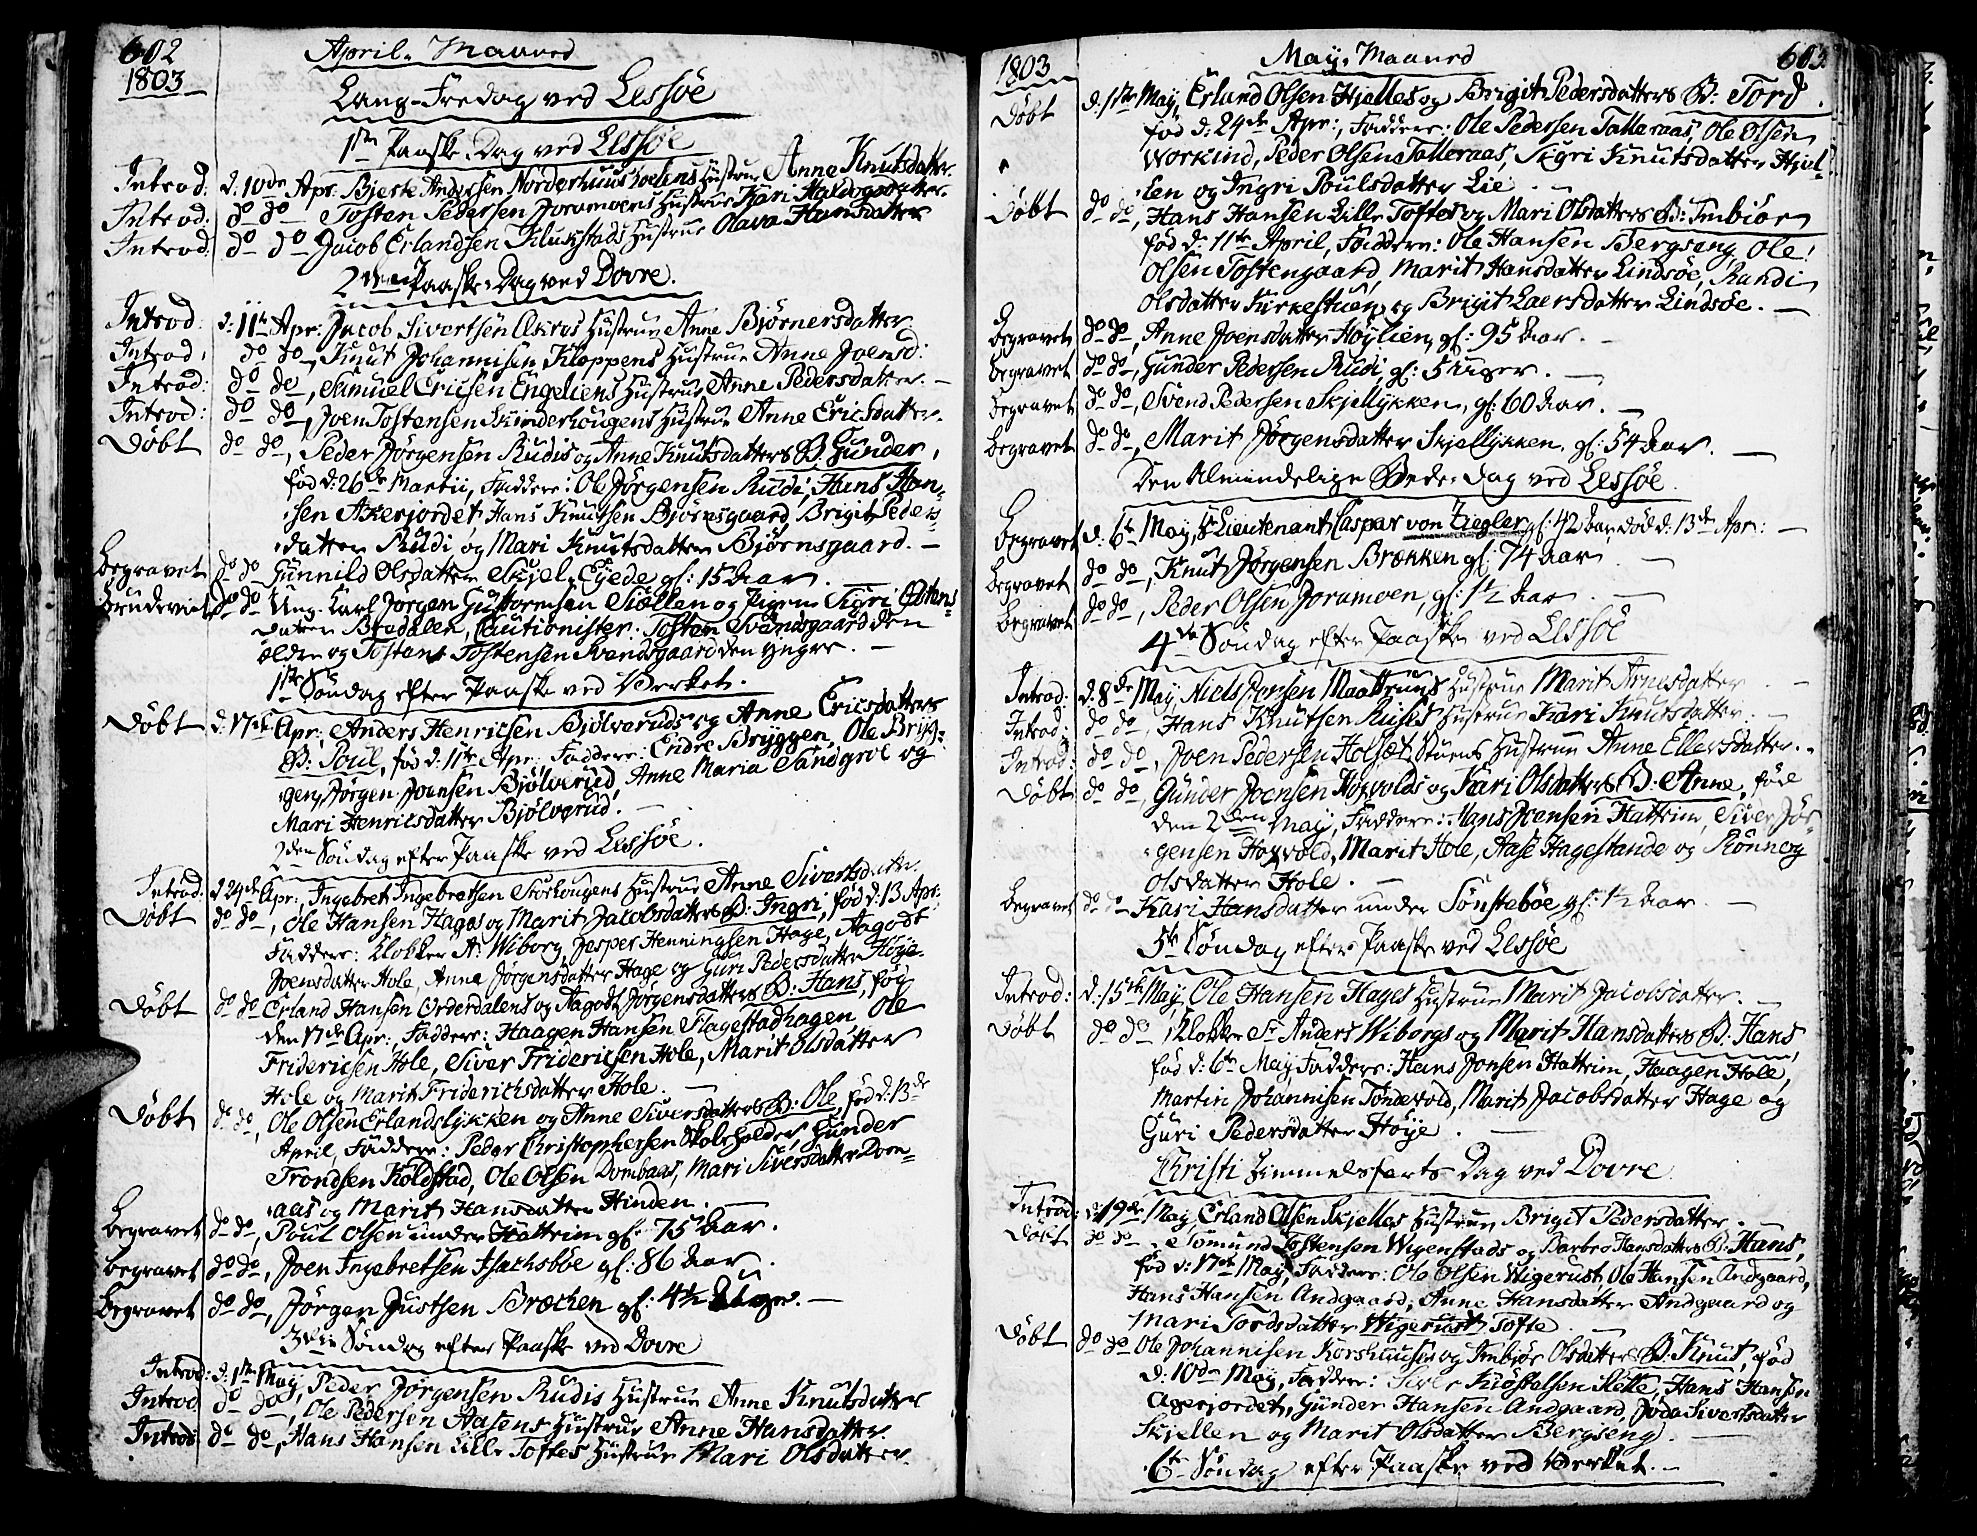 602
1803
April. Maaned
Lang-Fredag ved Lessøe
1ste Paaske Dag ved Lessøe
Introd: d: 10de Apr: Bjerte Andersen Norderhuus Hustrue Anne Knutsdatter
Introd: do do Tosten Pedersen Joramoens Hustrue Kari
Introd: do do Jacob Erlandsen Flukstads Hustrue Olava Hansdatter
2den Paaske-Dag ved Dovre.
Introd: d: 11te Apr: Jacob Sivertsen Hustrue Anne Bjørnersdatter
Introd: do do, Knut Johannisen Kloppens Hustrue Anne Joensd:
Introd: do do, Samuel Ericsen Engeliens Hustrue Anne Pedersdatter. —
Introd: do do, Joen Tostensen Hustrue Anne Ericsdatter.
Døbt do do, Peder Jørgensen Rudis og Anne Knutsdatters B: Gunder,
fød d: 26de Martii, Faddere: Ole Jørgensen Rudi, Hans Han-
sen Akerjordet Hans Knutsen Bjørnsgaard, Brigit Peders-
datter Rudi og Mari Knutsdatter Bjørnsgaard. —
Begravet do do Gunnild Olsdatter gl: 15 Aar.
do do Ung-Karl Jørgen Guttormsen og Pigen Sigri
datter Bredalen, Cautionister: Tosten Svendsgaard den
ælder og Tosten Tostensen Svendsgaard den yngre. —
1ste Søndag efter Paaske ved Verket.
Døbt d: 17de Apr: Anders Henricsen Bjølveruds og Anne Ericsdatters
B: Poul, fød d: 11te Apr: Faddere: Endre Bryggen, Ole Bryg-
gen, Jørgen Joensen Bjølverud, Anne Maria Sandgroe og
Mari Henricsdatter Bjølverud. —
2den Søndag efter Paaske ved Lessøe.
Introd: d 24de Apr:, Ingebret Ingebretsen Hustrue Anne Sivertsdatter
Døbt do do, Ole Hansen Hages og Marit Jacobsdatters B: Ingri, fød d: 13 Apr:
Faddere: Klokker A: Wiborg, Jesper Henningsen Hage, Aagodt
Joensdatter Hole, Anne Jørgensdatter Hage og Guri Pedersdatter Høye.
Døbt do do Erland Hansen Orderdalens og Aagodt Jørgensdatters B: Hans, fød
den 17de Apr:, Faddere: Haagen Hansen Flagestadhagen, Ole
Fridericsen Hole, Siver Fridericsen Hole, Marit Olsdatter
Hole og Marit Friderichsdatter Hole. —
Døbt do do, Ole Olsen Erlandslykken og Anne Siversdatters B: Ole, fød d: 13de
April, Faddere: Peder Christophersen Skoleholder, Gunder
Trondsen Koldstad, Ole Olsen Dombaas, Mari Siversdatter Dom-
aas og Marit Hansdatter Hinden. —
Begravet do do, Poul Olsen under Hattrim gl: 75 Aar.
Begravet do do, Joen Ingebretsen gl: 86 Aar.
Begravet do do, Jørgen Justsen gl: 4½ Uge. —
3die Søndag efter Paaske ved Dovre
Introd: d: 1ste May, Peder Jørgensen Rudis Hustrue Anne Knutsdatter
Introd do do, Ole Pedersen Aasens Hustrue Anne Hansdatter
Introd do do, Hans Hansen Lille Toftes Hustrue Mari Olsdatter.
603
1803
May. Maaned
Døbt d: 1ste May, Erland Olsen Hjelles og Brigit Pedersdatters B: Tord,
fød d: 24de Apr:, Faddere: Ole Pedersen Talleraas, Ole Olsen
Peder Olsen Talleraas, Sigri Knutsdatter Hjel-
len og Ingri Poulsdatter Lie. —
Døbt do do, Hans Hansen Lille Toftes og Mari Olsdatters B: Imbiør
fød d: 11te April, Faddere: Ole Hansen Bergseng, Ole
Olsen Tostengaard, Marit Hansdatter Lindsøe, Randi
Olsdatter Kirkestuen og Brigit Laersdatter Lindsøe. —
Begravet do do, Anne Joensdatter Høylien, gl: 95 Aar. —
Begravet do do, Gunder Pedersen Rudi, gl: 5 Uger. —
Begravet do do, Svend Pedersen Skjellykken, gl: 60 Aar. —
Begravet do do, Marit Jørgensdatter Skjellykken. gl: 54 Aar. —
Den Almindelige Bede-Dag ved Lessøe.
Begravet d: 6te May, Sr Lieutenant Caspar von Ziegler gl: 42 Aar, død d: 13de Apr: —
Begravet do do, Knut Jørgensen Brekken gl: 74 Aar —
Begravet do do, Peder Olsen Joramoen, gl: 1½ Aar. —
4de Søndag efter Paaske ved Lessøe
Introd: d: 8de May, Niels Jonsen Hustrue Marit Arnesdatter —
Introd: do do, Hans Knutsen Hustrue Kari Knutsdatter. —
Introd: do do, Joen Pedersen Stuens Hustrue Anne Ellersdatter. —
Døbt do do, Gunder Joensen Hogvolds og Kari Olsdatters B: Anne, fød
den 2den May, Faddere: Hans Joensen Hattrim, Siver Jør-
gensen Hogvold, Marit Hole, Aase Hagestande og Rønnog
Olsdatter Hole. —
Begravet do do Kari Hansdatter under Sønstebøe gl: ½ Aar. —
5te Søndag efter Paaske ved Lessøe
Introd: d: 15de May, Ole Hansen Hages Hustrue Marit Jacobsdatter. —
Døbt do do Klokker Sr Anders Wiborgs og Marit Hansdatters B: Hans,
fød d: 6te May, Faddere: Hans Jonsen Hattrim, Haagen Hole,
Martin Johannisen Tøndevold, Marit Jacobsdatter Hage og
Guri Pedersdatter Høye. —
Christi Himmelfarts Dag ved Dovre
Introd: d: 19de May, Erland Olsen Skjelles Hustrue Brigit Pedersdatter. —
Døbt do do, Tostensen Wigenstads og Barbro Hansdatters B: Hans,
fød d: 17de May, Faddere: Ole Olsen Wigerust, Ole Hansen Andgaard,
Hans Hansen Andgaard, Anne Hansdatter Andgaard og
Mari Tordsdatter Wigerust Tofte. —
Døbt do do Ole Johannisen Korshuusen og Imbjør Olsdatters B: Knut, fød
d: 10de May, Faddere: Hans Hansen
Agerjordet, Gunder Hansen Andgaard, Joda Sivertsdatter
Skjellen og Marit Olsdatter Bergseng. —
6te Søndag efter Paaske ved Verket. —